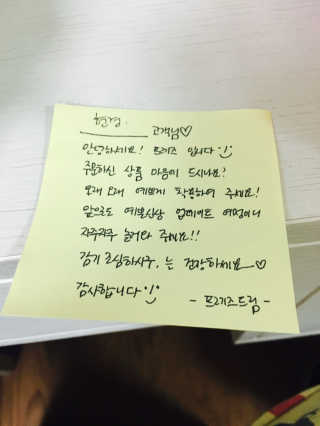 현경.
고객님♡
안녕하세요! 프리즈 입니다 :)
주문하신 상품 마음에 드시나요?
오래오래 예쁘게 착용하여 주세요!
앞으로도 예쁜신상 업데이트 예정이니
자주자주 놀러와 주세요!!
감기 조심하시구, 늘 건강하세요 ♡
감사합니다 :)
- 프리즈드림 -